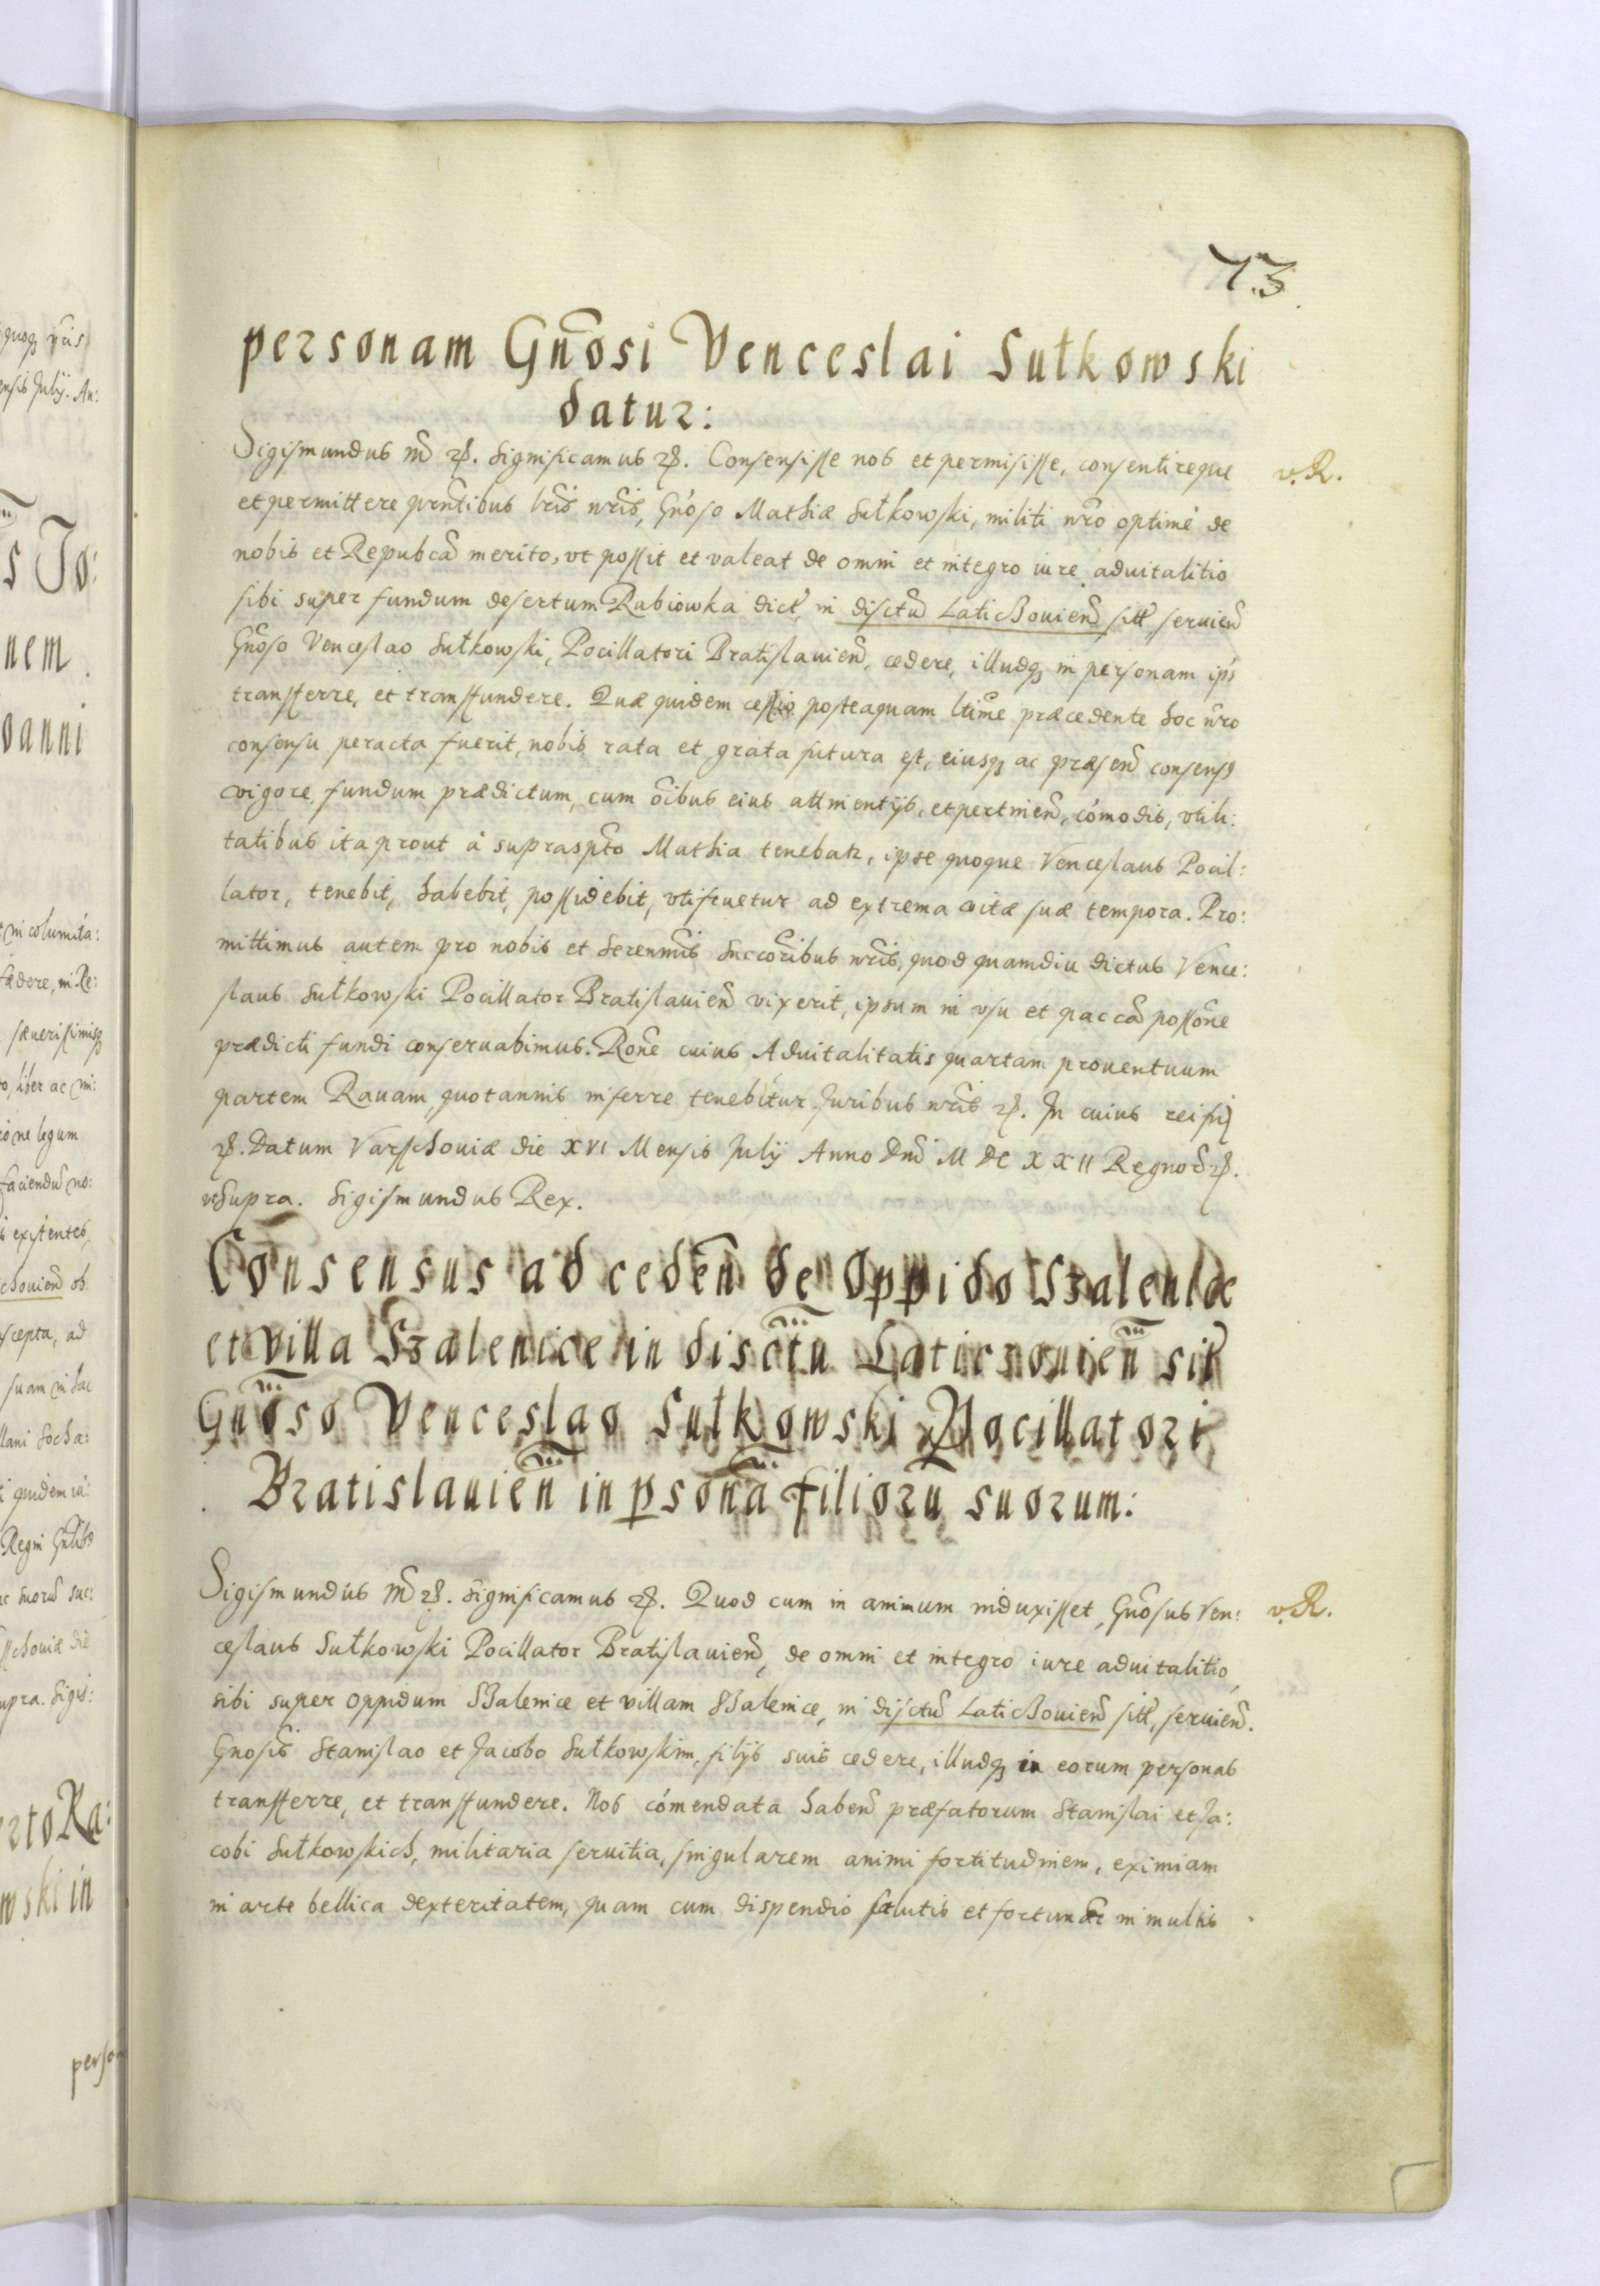 73
personam Gnõsi Venceslai Sułkowski
datur:
Sigismundus &c. Significamus &c. Consensisse nos et permisisse, consentireque
v. R.
et permittere prntibus lris nris, Gnoso Mathiæ Sułkowski, militi nro optimè de
nobis et Repubca merito, vt possit et valeat de omni et integro iure aduitalitio
sibi super fundum desertum Rabiowka dict, in disctu Laticzouien sitt, seruien
Gnoso Venceslao Sułkowski, Pocillatori Bratislauien, cedere, illudq in personam ips
transferre, et transfundere. Quæ quidem cessio posteaquam ltime præcedente hoc nro
consensu peracta fuerit, nobis rata et grata futura est, eiusq ac præsen consens9
vigore fundum prædictum, cum oibus eius attinentijs, et pertinen, cómodis, vtili:
tatibus ita prout à supraspto Mathia tenebatr, ipse quoque Venceslaus Pocil:
lator, tenebit, habebit, possidebit, vtifruetur ad extrema vitæ suæ tempora. Pro:
mittimus autem pro nobis et Serenmis Succoribus nris, quod quamdiu dictus Vence:
slaus Sułkowski Pocillator Bratislauien vixerit, ipsum in vsu et pacca possone
prædicti fundi conseruabimus. Rone cuius Aduitalitatis quartam prouentuum
partem Rauam, quotannis inferre tenebitur. Juribus nris &c. In cuius rei fid
&c. Datum Varsschouiæ die XVI Mensis Julij Anno Dni M DC XXII Regno &c.
vtsupra. Sigismundus Rex.
Consensus ad ceden de Oppido Szalenicæ
et villa Szalenice in disctu Laticzouien sit
Gnoso Venceslao Sułkowski Pocillatori
Bratislauien in psona filioru suorum:
Sigismundus &c. Significamus &c. Quod cum in animum induxisset, Gnosus Ven:
v. R.
ceslaus Sułkowski Pocillator Bratislauien, de omni et integro iure aduitalitio,
sibi super oppidum Szalenice et villam Szalenice, in disctu Laticzouien sitt, seruien.
Gnosis Stanislao et Jacobo Sułkowskim, filijs suis cedere, illudq in eorum personas
transferre, et transfundere. Nos cómendata haben præfatorum Stanislai et Ja:
cobi Sułkowskich, militaria seruitia, singularem animi fortitudinem, eximiam
in arte bellica dexteritatem, quam cum dispendio salutis et fortunæ in multis